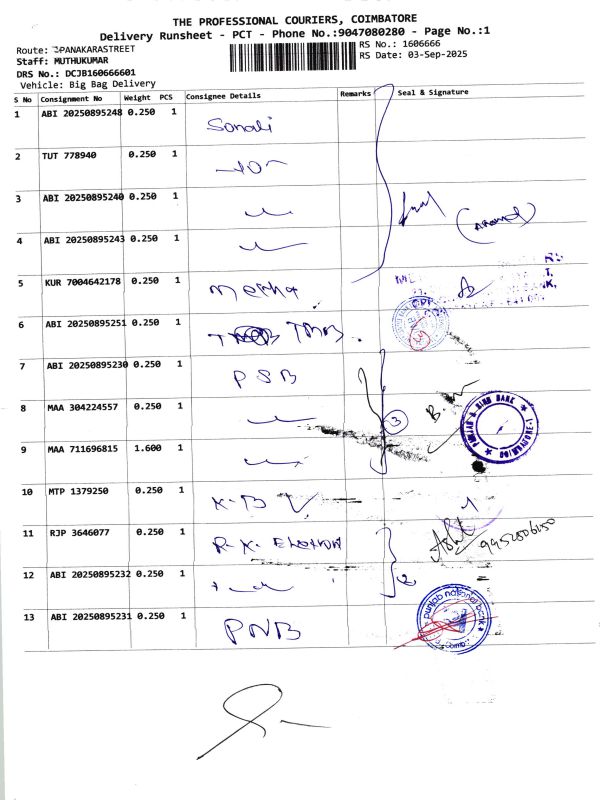 THE PROFESSIONAL COURIERS, COIMBATORE
Delivery Runsheet - PCT - Phone No.:9047080280 - Page No.:1
Route: OPANAKARASTREET
RS No.: 1606666
Staff: MUTHUKUMAR
RS Date: 03-Sep-2025
DRS No.: DCJB160666601
Vehicle: Big Bag Delivery
S No Consignment No Weight PCS Consignee Details Remarks Seal & Signature
1 ABI 20250895248 0.250 1 Sonali
2 TUT 778940 0.250 1
3 ABI 20250895240 0.250 1
4 ABI 20250895243 0.250 1
5 KUR 7004642178 0.250 1
6 ABI 20250895251 0.250 1 TMB
7 ABI 20250895230 0.250 1 PSB
8 MAA 304224557 0.250 1
3
PUNJAB & SIND BANK
9 MAA 711696815 1.600 1
10 MTP 1379250 0.250 1
11 RJP 3646077 0.250 1
12 ABI 20250895232 0.250 1
2
13 ABI 20250895231 0.250 1 PNB
punjab national bank